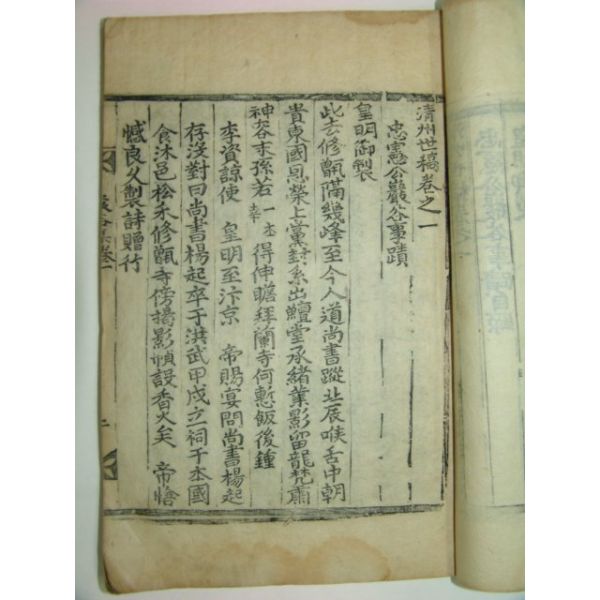 清州世稿卷之一
忠憲公巖谷事蹟
皇明御製
此去修甑隔幾峰至今人道尚書蹤北辰喉舌中朝
貴東國恩榮上黨封系出鱣堂承緖業影留龍梵肅
神容末孫若一本幸得伸瞻拜蘭寺何慙飯後鍾
李資諒使 皇明至汴京 帝賜宴問尚書楊起
存沒對曰尚書楊起卒于洪武甲戌立祠于本國
食沐邑松禾修甑寺傍揭影幀設香火矣 帝嗟
憾良久製詩贈行
谷集卷一